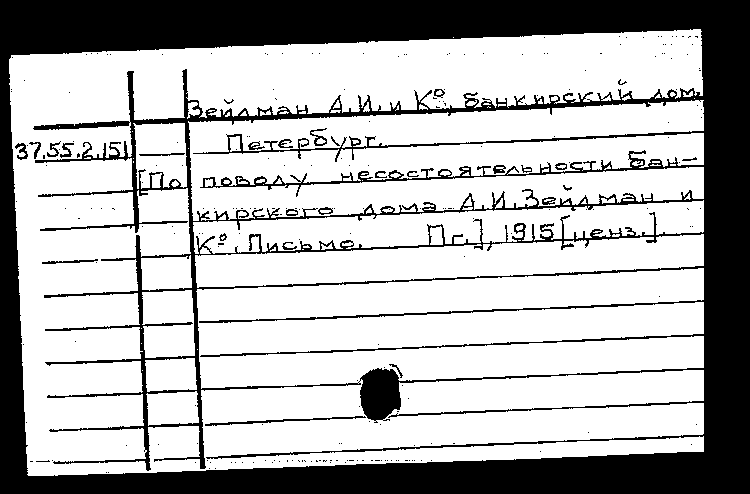 Зейдман А.И. и К°, банкирский дом.
37.55.2.151 Петербург.
[По поводу несостоятельности бан-
кирского дома А.И.Зейдман и
К°. Письмо. Пг.], 1915 [ценз.].